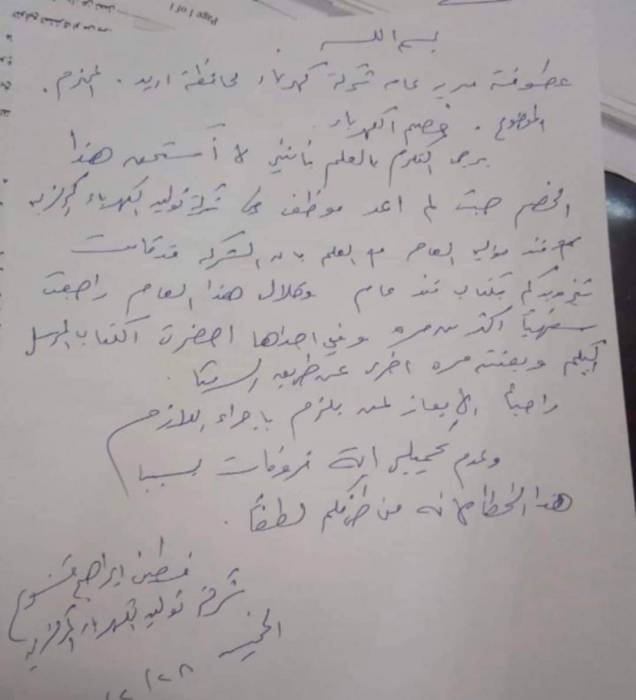 Page 1 of 1
بسم الله
عطوفة مدير عام شركة كهرباء محافظة اربد . المحترم .
الموضوع . خصم الكهرباء
يرجى التكرم بالعلم بأنني لا أستحق هذا
الخصم حيث لم اعد موظف في شركة توليد الكهرباء المركزية
منذ حوالي العام مع العلم بان الشركة قد قامت
بتزويدكم بكتاب منذ عام وخلال هذا العام راجعت
شفهياً اكثر من مره وفي احداها احضرت الكتاب المرسل
اليكم وبعثته مره اخرى عن طريق
راجياً الإيعاز لمن يلزم بإجراء اللازم
وعدم تحميلي اية فروقات بسبب
هذا الخطأ من طرفكم لطفاً .
ابراهيم
شركة توليد الكهرباء المركزية
الخميس
١٢/٢٨